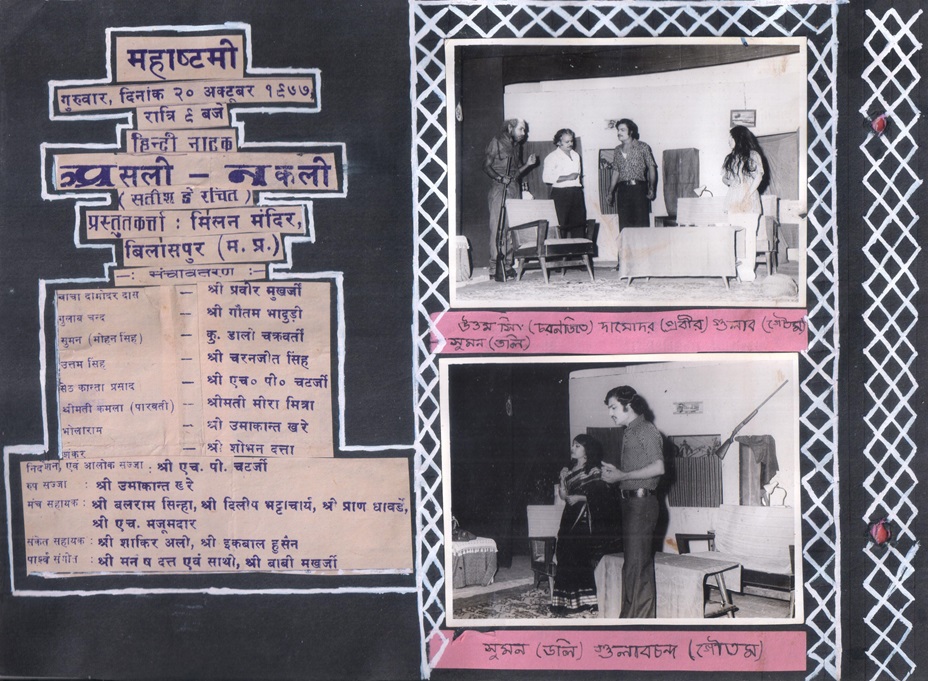 महाष्टमी
गुरुवार, दिनांक २० अक्टूबर १९७७,
रात्रि ९ बजे
हिन्दी नाटक
असली - नकली
(सतीश डे रचित)
प्रस्तुतकर्त्ता : मिलन मंदिर,
बिलासपुर (म. प्र.)
-: मंचावतरण :-
बाबा दामोदर दास — श्री प्रवीर मुखर्जी
गुलाब चन्द — श्री गौतम भादुड़ी
सुमन (मोहन सिंह) — कु. डाली चक्रवर्ती
उत्तम सिंह — श्री चरनजीत सिंह
सेठ कालता प्रसाद — श्री एच० पी० चटर्जी
श्रीमती कमला (पारबती) — श्रीमती मीरा मित्रा
भोलाराम — श्री उमाकान्त खरे
शंकर — श्री शोभन दत्ता
निर्देशन, एवं आलोक सज्जा : श्री एच. पी. चटर्जी
रूप सज्जा : श्री उमाकान्त खरे
मंच सहायक : श्री बलराम सिन्हा, श्री दिलीप भट्टाचार्य, श्री प्राण धावर्डे,
श्री एच. मजूमदार
संकेत सहायक : श्री शाकिर अली, श्री इकबाल हुसैन
पार्श्व संगीत : श्री मनीष दत्त एवं साथी, श्री बाबी मुखर्जी
উত্তম সিং (চরনজিত) দামোদর (প্রবীর) গুলাব (গৌতম)
সুমন (ডলি)
সুমন (ডলি) গুলাবচন্দ (গৌতম)